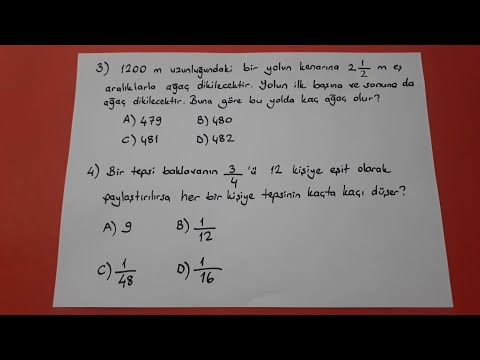 3) 1200 m uzunluğundaki bir yolun kenarına 2 1/2 m eş
aralıklarla ağaç dikilecektir. Yolun ilk başına ve sonuna da
ağaç dikilecektir. Buna göre bu yolda kaç ağaç olur?
A) 479 B) 480
C) 481 D) 482
4) Bir tepsi baklavanın 3/4 'ü 12 kişiye eşit olarak
paylaştırılırsa her bir kişiye tepsinin kaçta kaçı düşer?
A) 9 B) 1/12
C) 1/48 D) 1/16